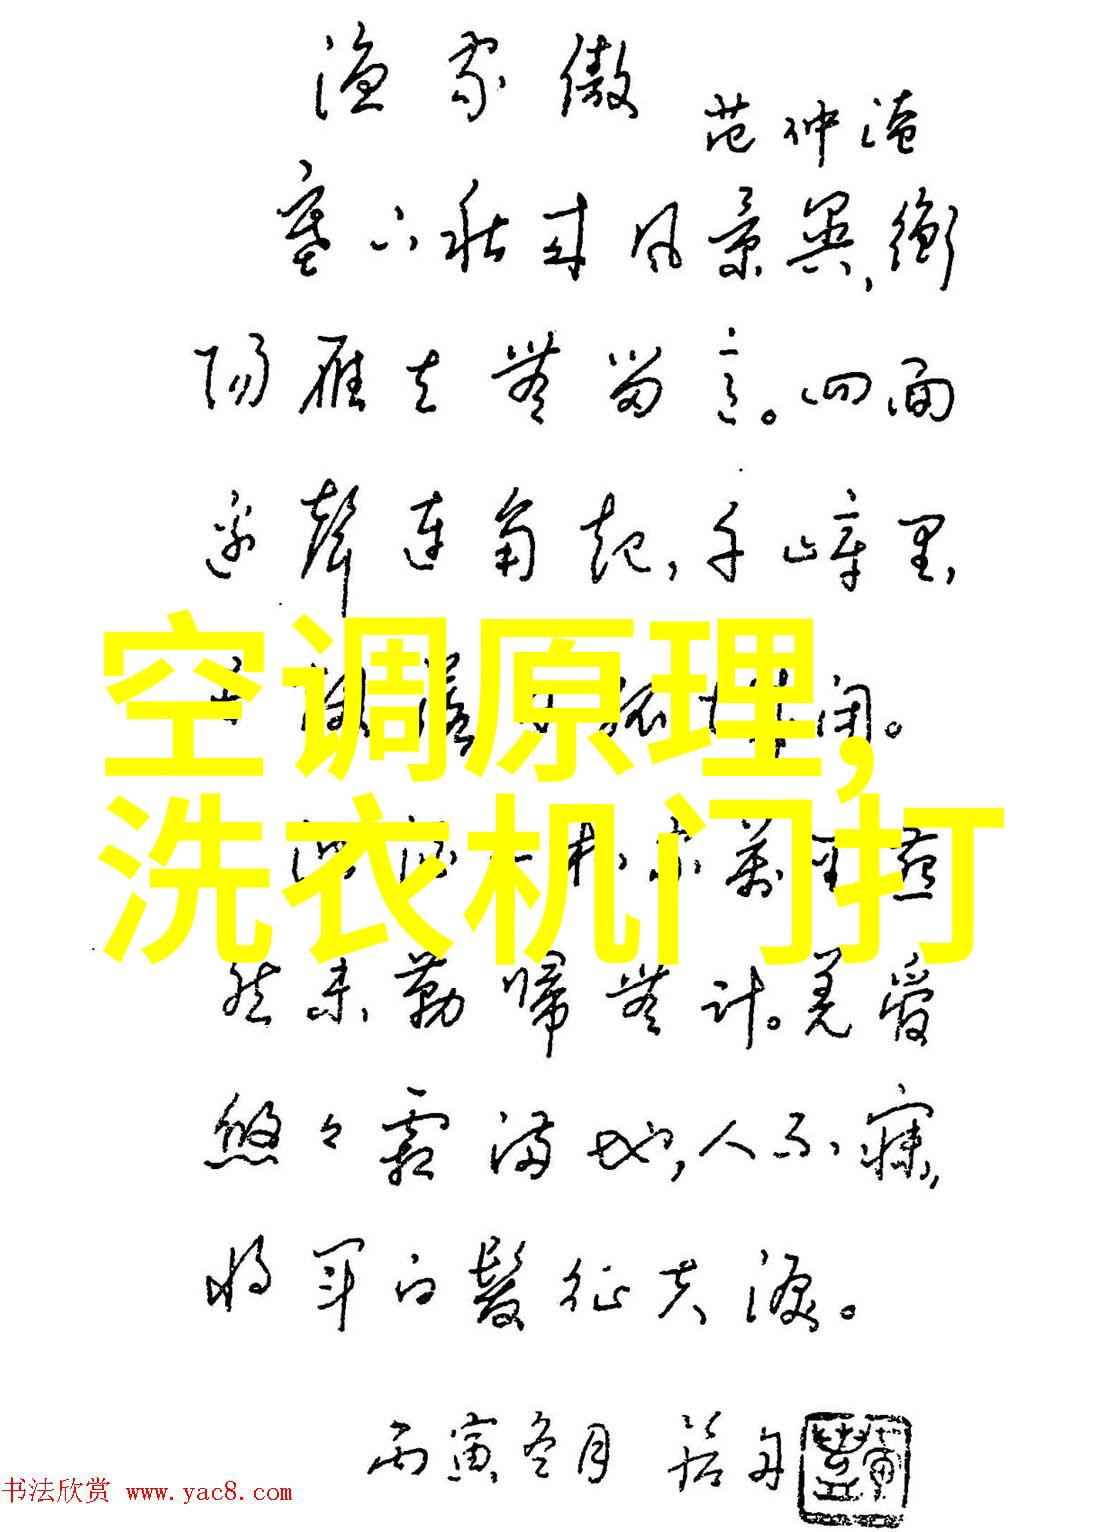 渔家傲
范仲淹
塞下秋来风景異,衡
阳雁去無留意。四面
边聲连角起,千嶂里,
闭。
空调原理,
洗衣机门打
萬里燕
然未勒歸無计。羌管
悠々霜满地,人不寐,
将军白髮征夫淚。
丙寅冬月
书法欣赏 www.yac8.com